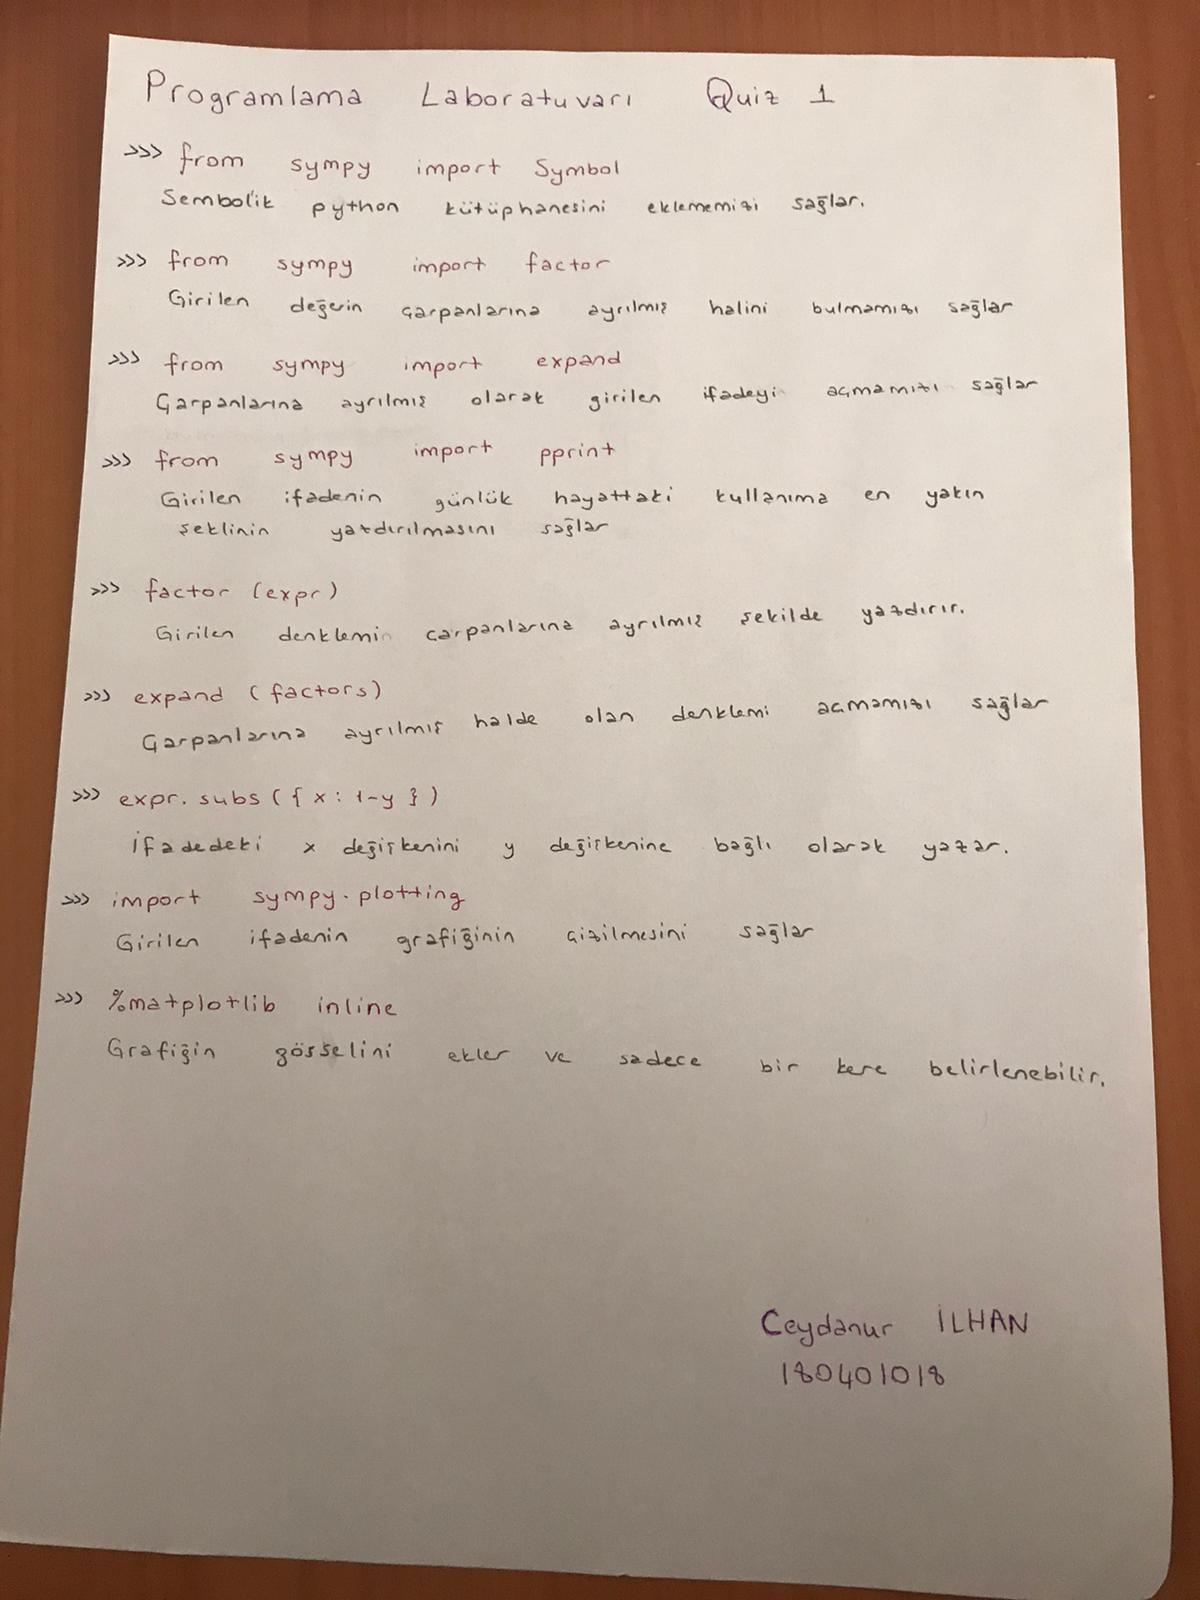 Programlama Laboratuvarı Quiz 1
>>> from sympy import Symbol
Sembolik python kütüphanesini eklememizi sağlar.
>>> from sympy import factor
Girilen değerin çarpanlarına ayrılmış halini bulmamızı sağlar
>>> from sympy import expand
Çarpanlarına ayrılmış olarak girilen ifadeyi açmamızı sağlar
>>> from sympy import pprint
Girilen ifadenin günlük hayattaki kullanıma en yakın
şeklinin yazdırılmasını sağlar
>>> factor (expr)
Girilen denklemin çarpanlarına ayrılmış şekilde yazdırır.
>>> expand (factors)
Çarpanlarına ayrılmış halde olan denklemi açmamızı sağlar
>>> expr. subs ({ x : 1-y })
İfadedeki x değişkenini y değişkenine bağlı olarak yazar.
>>> import sympy.plotting
Girilen ifadenin grafiğinin çizilmesini sağlar
>>> %matplotlib inline
Grafiğin görselini ekler ve sadece bir kere belirlenebilir.
Ceydanur İLHAN
180401018